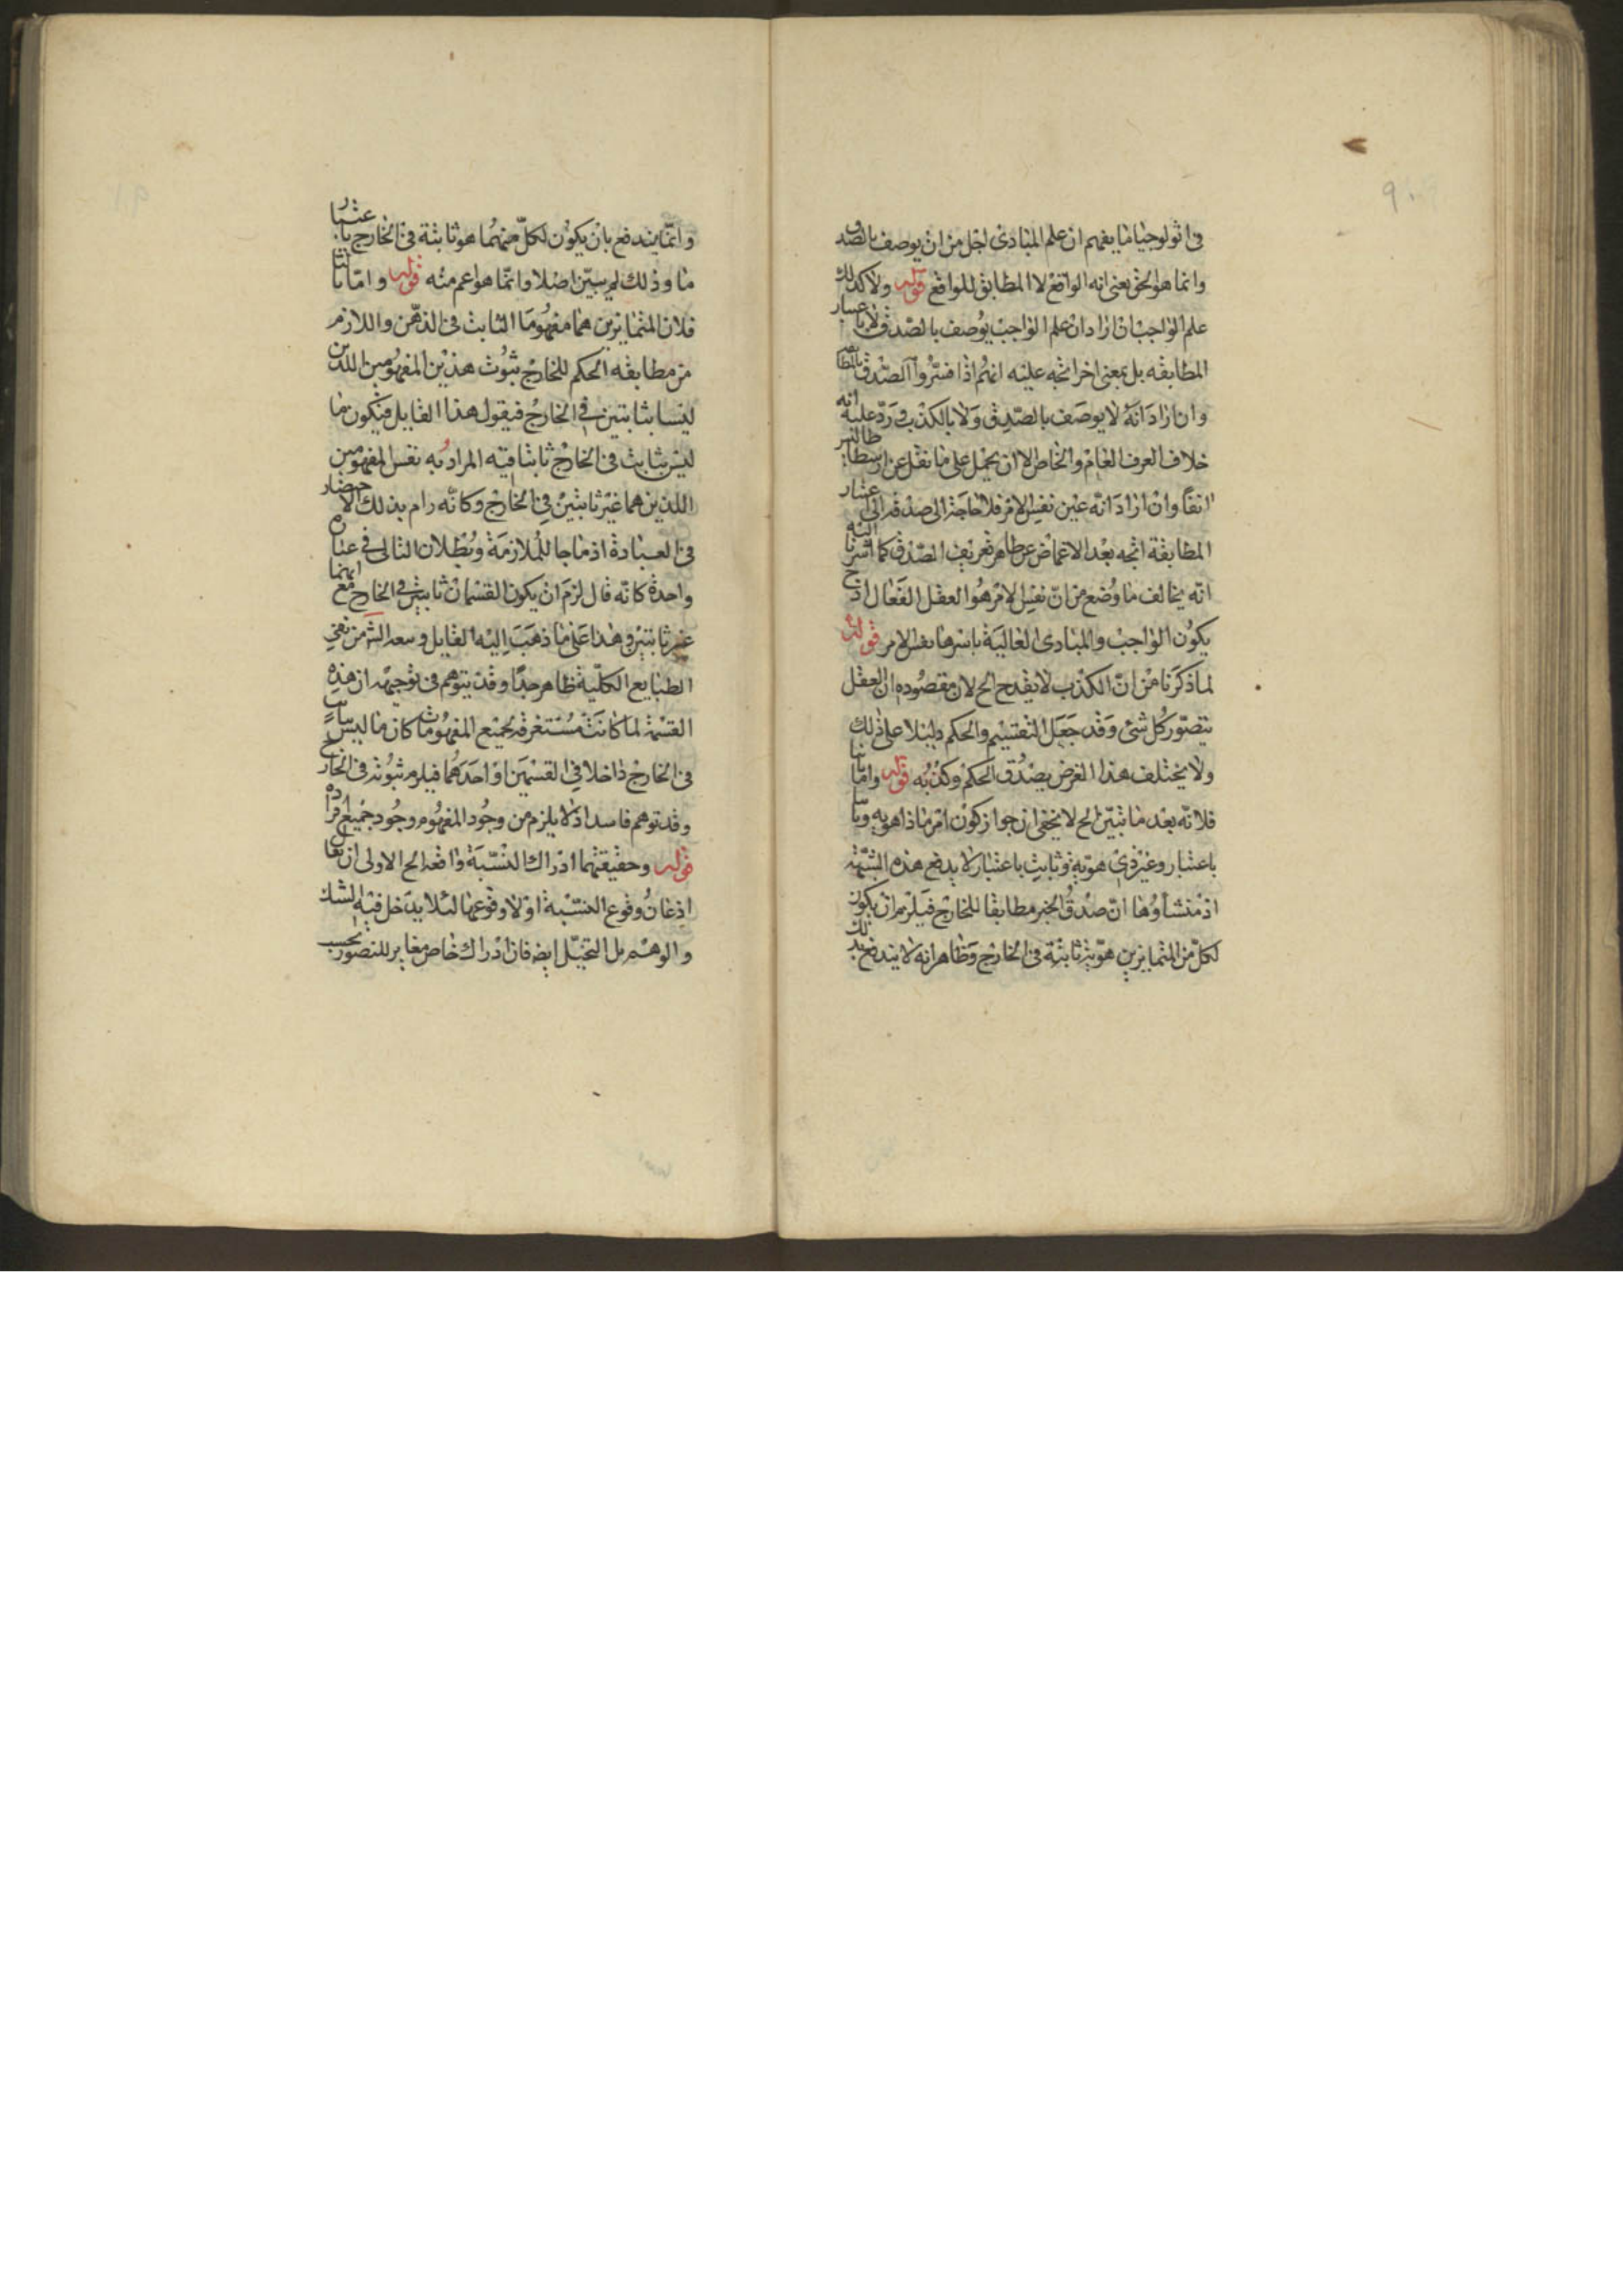 في اثولوجيا ما يفهم ان علم المبادى اجل من ان يوصف بالصدق
وانما هو الحق بمعنى انه الواقع لا المطابق للواقع قوله ولا كذلك
علم الواجب ان اراد ان علم الواجب يوصف بالصدق لا باعتبار
المطابقه بل بمعنى اخر اتجه عليه انهم اذا فسروا الصدق بالمطا
وان اراد انه لا يوصف بالصدق ولا بالكذب ورد عليه انه
خلاف العرف العام والخاص الا ان يحمل على ما نقل عن ارسطاطاليس
انفا وان اراد انه عين نفس الامر فلا حاجة الى صدقه الى اعتبار
المطابقة اتجه بعد الاغماض عن ظاهر تعريف الصدق كما اشرنا اليه
انه يخالف ما وضع من ان نفس الامر هو العقل الفعال اذ ح
يكون الواجب والمبادى العالية باسرها نفس الامر قوله
لما ذكرنا من ان الكذب لا يقدح الخ لان مقصوده ان العقل
يتصور كل شئ وقد جعل التقسيم والحكم دليلا على ذلك
ولا يختلف هذا الغرض بصدق الحكم وكذبه قوله واما ثانيا
فلانه بعد ما تبين الخ لا يخفى ان جواز كون امر ما ذا هوية وثابتا
باعتبار وغير ذى هوية وثابت باعتبار لا يدفع هذه الشبهة
اذ منشأوها ان صدق الخبر مطابقا للخارج فيلزم ان يكون
لكل من المتمايزين هوية ثابتة في الخارج وظاهر انه لا يندفع بذلك
وانما يندفع بان يكون لكل منهما هو ثابتة في الخارج باعتبار
ما وذلك لم يتبين اصلا وانما هو اعم منه قوله واما ثالثا
فلان المتمايزين هما مفهوما الثابت في الذهن واللازم
من مطابقه الحكم للخارج ثبوت هذين المفهومين اللذين
ليسا بثابتين في الخارج فيقول هذا القايل فيكون ما
ليس بثابت في الخارج ثابتا فيه المراد به نفس المفهومين
اللذين هما غير ثابتين في الخارج وكانه رام بذلك الاختصار
في العبادة اذ ماجا للملازمة وبطلان التالى في عبارة
واحدة كانه قال لزم ان يكون القسمان ثابتين في الخارج مع انهما
غير ثابتين وهذا على ما ذهب اليه القايل من نفى
الطبايع الكلية ظاهر جدا وقد يتوهم في توجيهه ان هذه
القسمة لما كانت مستغرقة لجميع المفهومات كان ما ليس بثابت
في الخارج داخلا في القسمين او احدهما فيلزم ثبوته في الخارج
وقد توهم فاسد اذ لا يلزم من وجود المفهوم وجود جميع افراده
قوله وحقيقتهما ادراك النسبة واقعه الخ الاولى ان يقال
اذعان وقوع النسبة او لا وقوعها لئلا يدخل فيه الشك
والوهم بل التخيل ايضه فان ادراك خاص مغاير للتصور بحسب